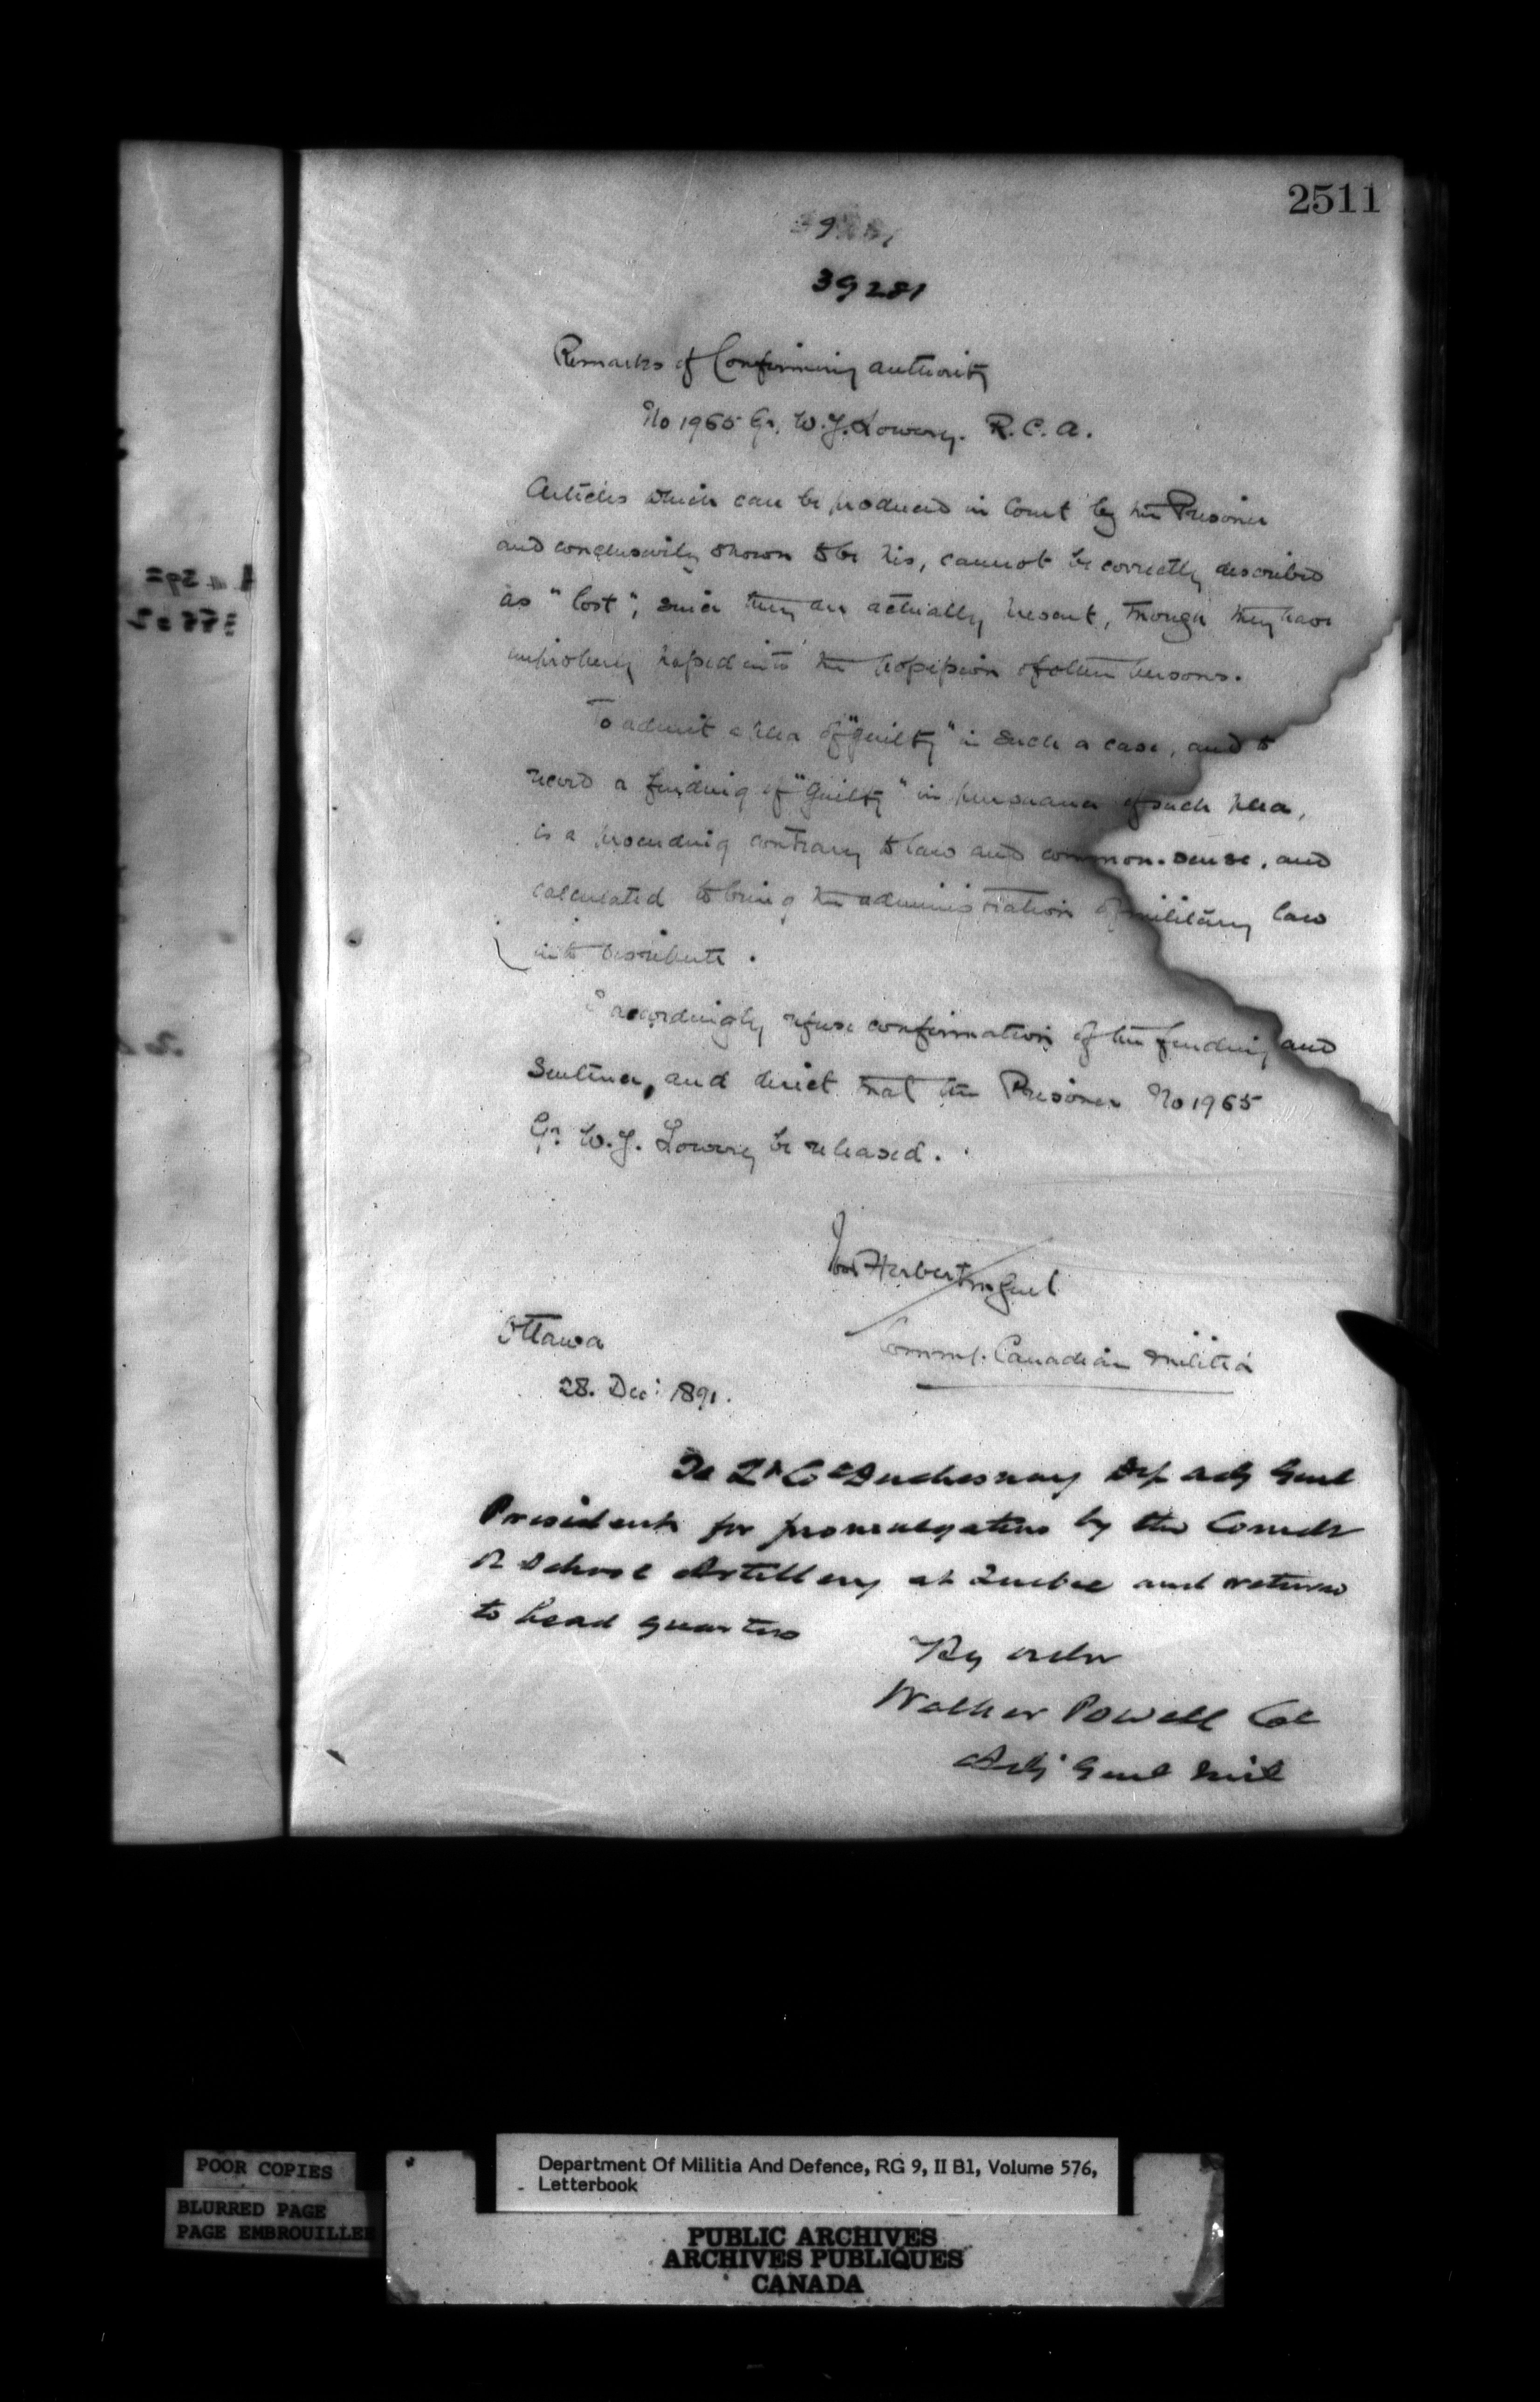 2511
39281
39281
Remarks of Confirming authority
No 1965 Gr. W.J. Lowery. R.C.A.
Articles which can be produced in Court by the Prisoner
and conclusively shown to be his, cannot be correctly described
as "lost", since they are actually present, though they have
improperly passed into the possession of other persons.
To admit a plea of "guilty" in such a case, and to
record a finding of "Guilty" in pursuance of such plea,
is a proceeding contrary to law and common-sense, and
calculated to bring the administration of military law
into disrepute.
I accordingly refuse confirmation of the finding and
Sentence, and direct that the Prisoner No 1965
Gr. W.J. Lowery be released.
Ivor Herbert M Genl
Commg. Canadian Militia
Ottawa
28. Dec: 1891.
To Lt Col Duchesnay Dep Adj Genl
President for promulgation by the Comdt
R School Artillery at Quebec and return
to head quarters
By order
Walker Powell Col
Adj Genl Mil
POOR COPIES
BLURRED PAGE
PAGE EMBROUILLEE
Department Of Militia And Defence, RG 9, II B1, Volume 576,
Letterbook
PUBLIC ARCHIVES
ARCHIVES PUBLIQUES
CANADA